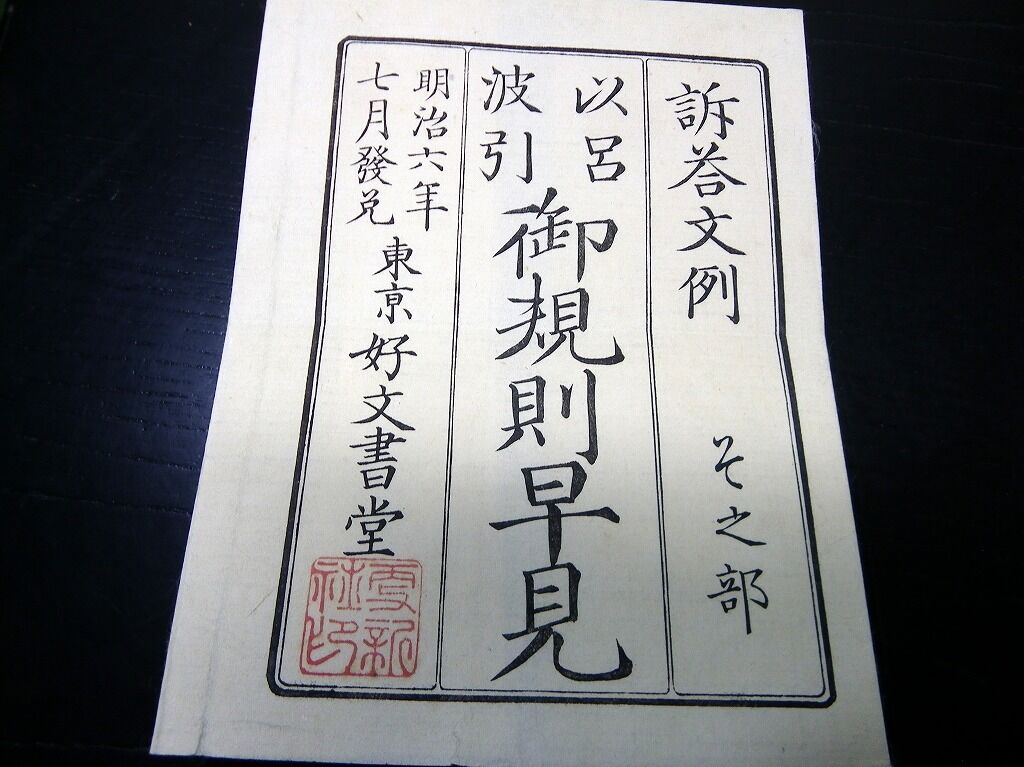 訴荅文例　そ之部
以呂
波引
御規則早見
明治六年
七月發兌
東京好文書堂